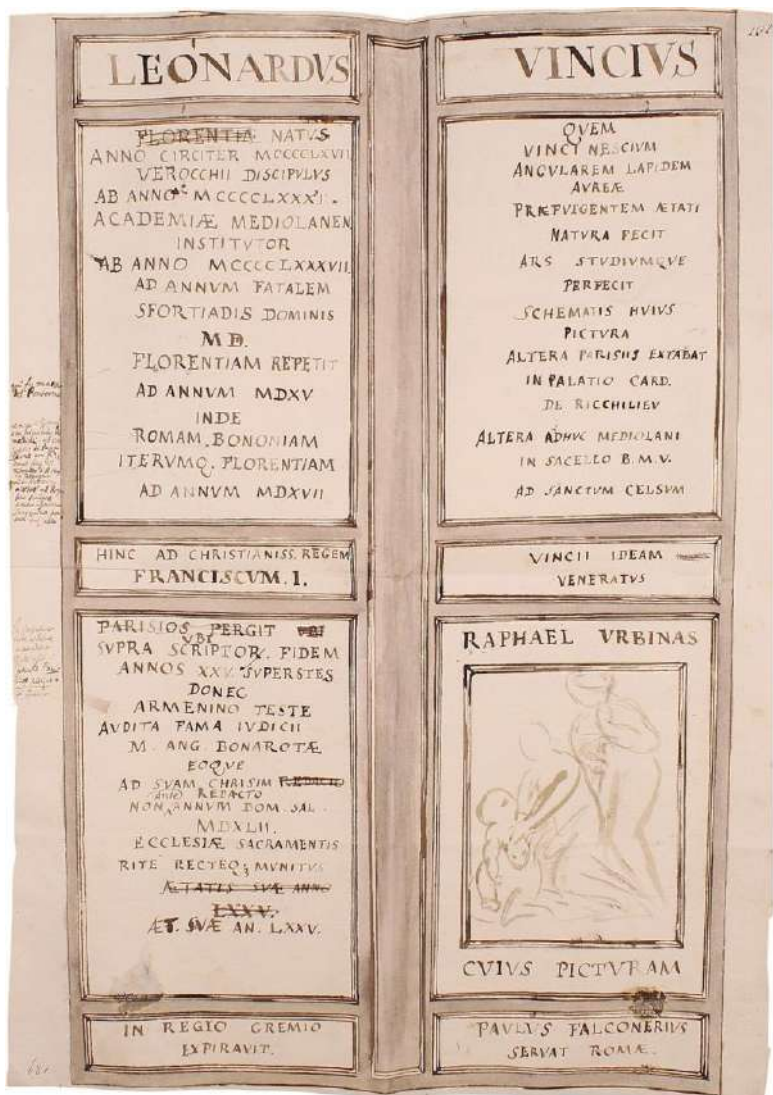 LEONARDVS
FLORENTIÆ NATVS
ANNO CIRCITER MCCCCLXVII
VEROCCHII DISCIPVLVS
AB ANNO MCCCCLXXXII.
ACADEMIÆ MEDIOLANEN
INSTITVTOR
AB ANNO MCCCCLXXXVII
AD ANNVM FATALEM
SFORTIADIS DOMINIS
MD.
FLORENTIAM REPETIT
AD ANNVM MDXV
INDE
ROMAM. BONONIAM
ITERVMQ. FLORENTIAM
AD ANNVM MDXVII
HINC AD CHRISTIANISS. REGEM
FRANCISCVM. I.
PARISIOS PERGIT VBI
VBI
SVPRA SCRIPTOR. FIDEM
ANNOS XXV. SVPERSTES
DONEC
ARMENINO TESTE
AVDITA FAMA IVDICII
M. ANG. BONAROTÆ
EOQVE
AD SVAM CHRISIM REDACTO
(Ante) REDACTO
NON ANNVM DOM. SAL.
MDXLII.
ECCLESIÆ SACRAMENTIS
RITE RECTEQ; MVNITVS
ÆTATIS SVÆ ANNO
LXXV.
ÆT. SVÆ AN. LXXV.
IN REGIO GREMIO
EXPIRAVIT.
VINCIVS
QVEM
VINCI NESCIVM
ANGVLAREM LAPIDEM
AVREÆ
PRÆFVLGENTEM ÆTATI
NATVRA FECIT
ARS STVDIVMQVE
PERFECIT
SCHEMATIS HVIVS
PICTVRA
ALTERA PARISIIS EXTABAT
IN PALATIO CARD.
DE RICCHILIEV
ALTERA ADHVC MEDIOLANI
IN SACELLO B.M.V.
AD SANCTVM CELSVM
VINCII IDEAM
VENERATVS
RAPHAEL VRBINAS
CVIVS PICTVRAM
PAVLVS FALCONERIVS
SERVAT ROMÆ.